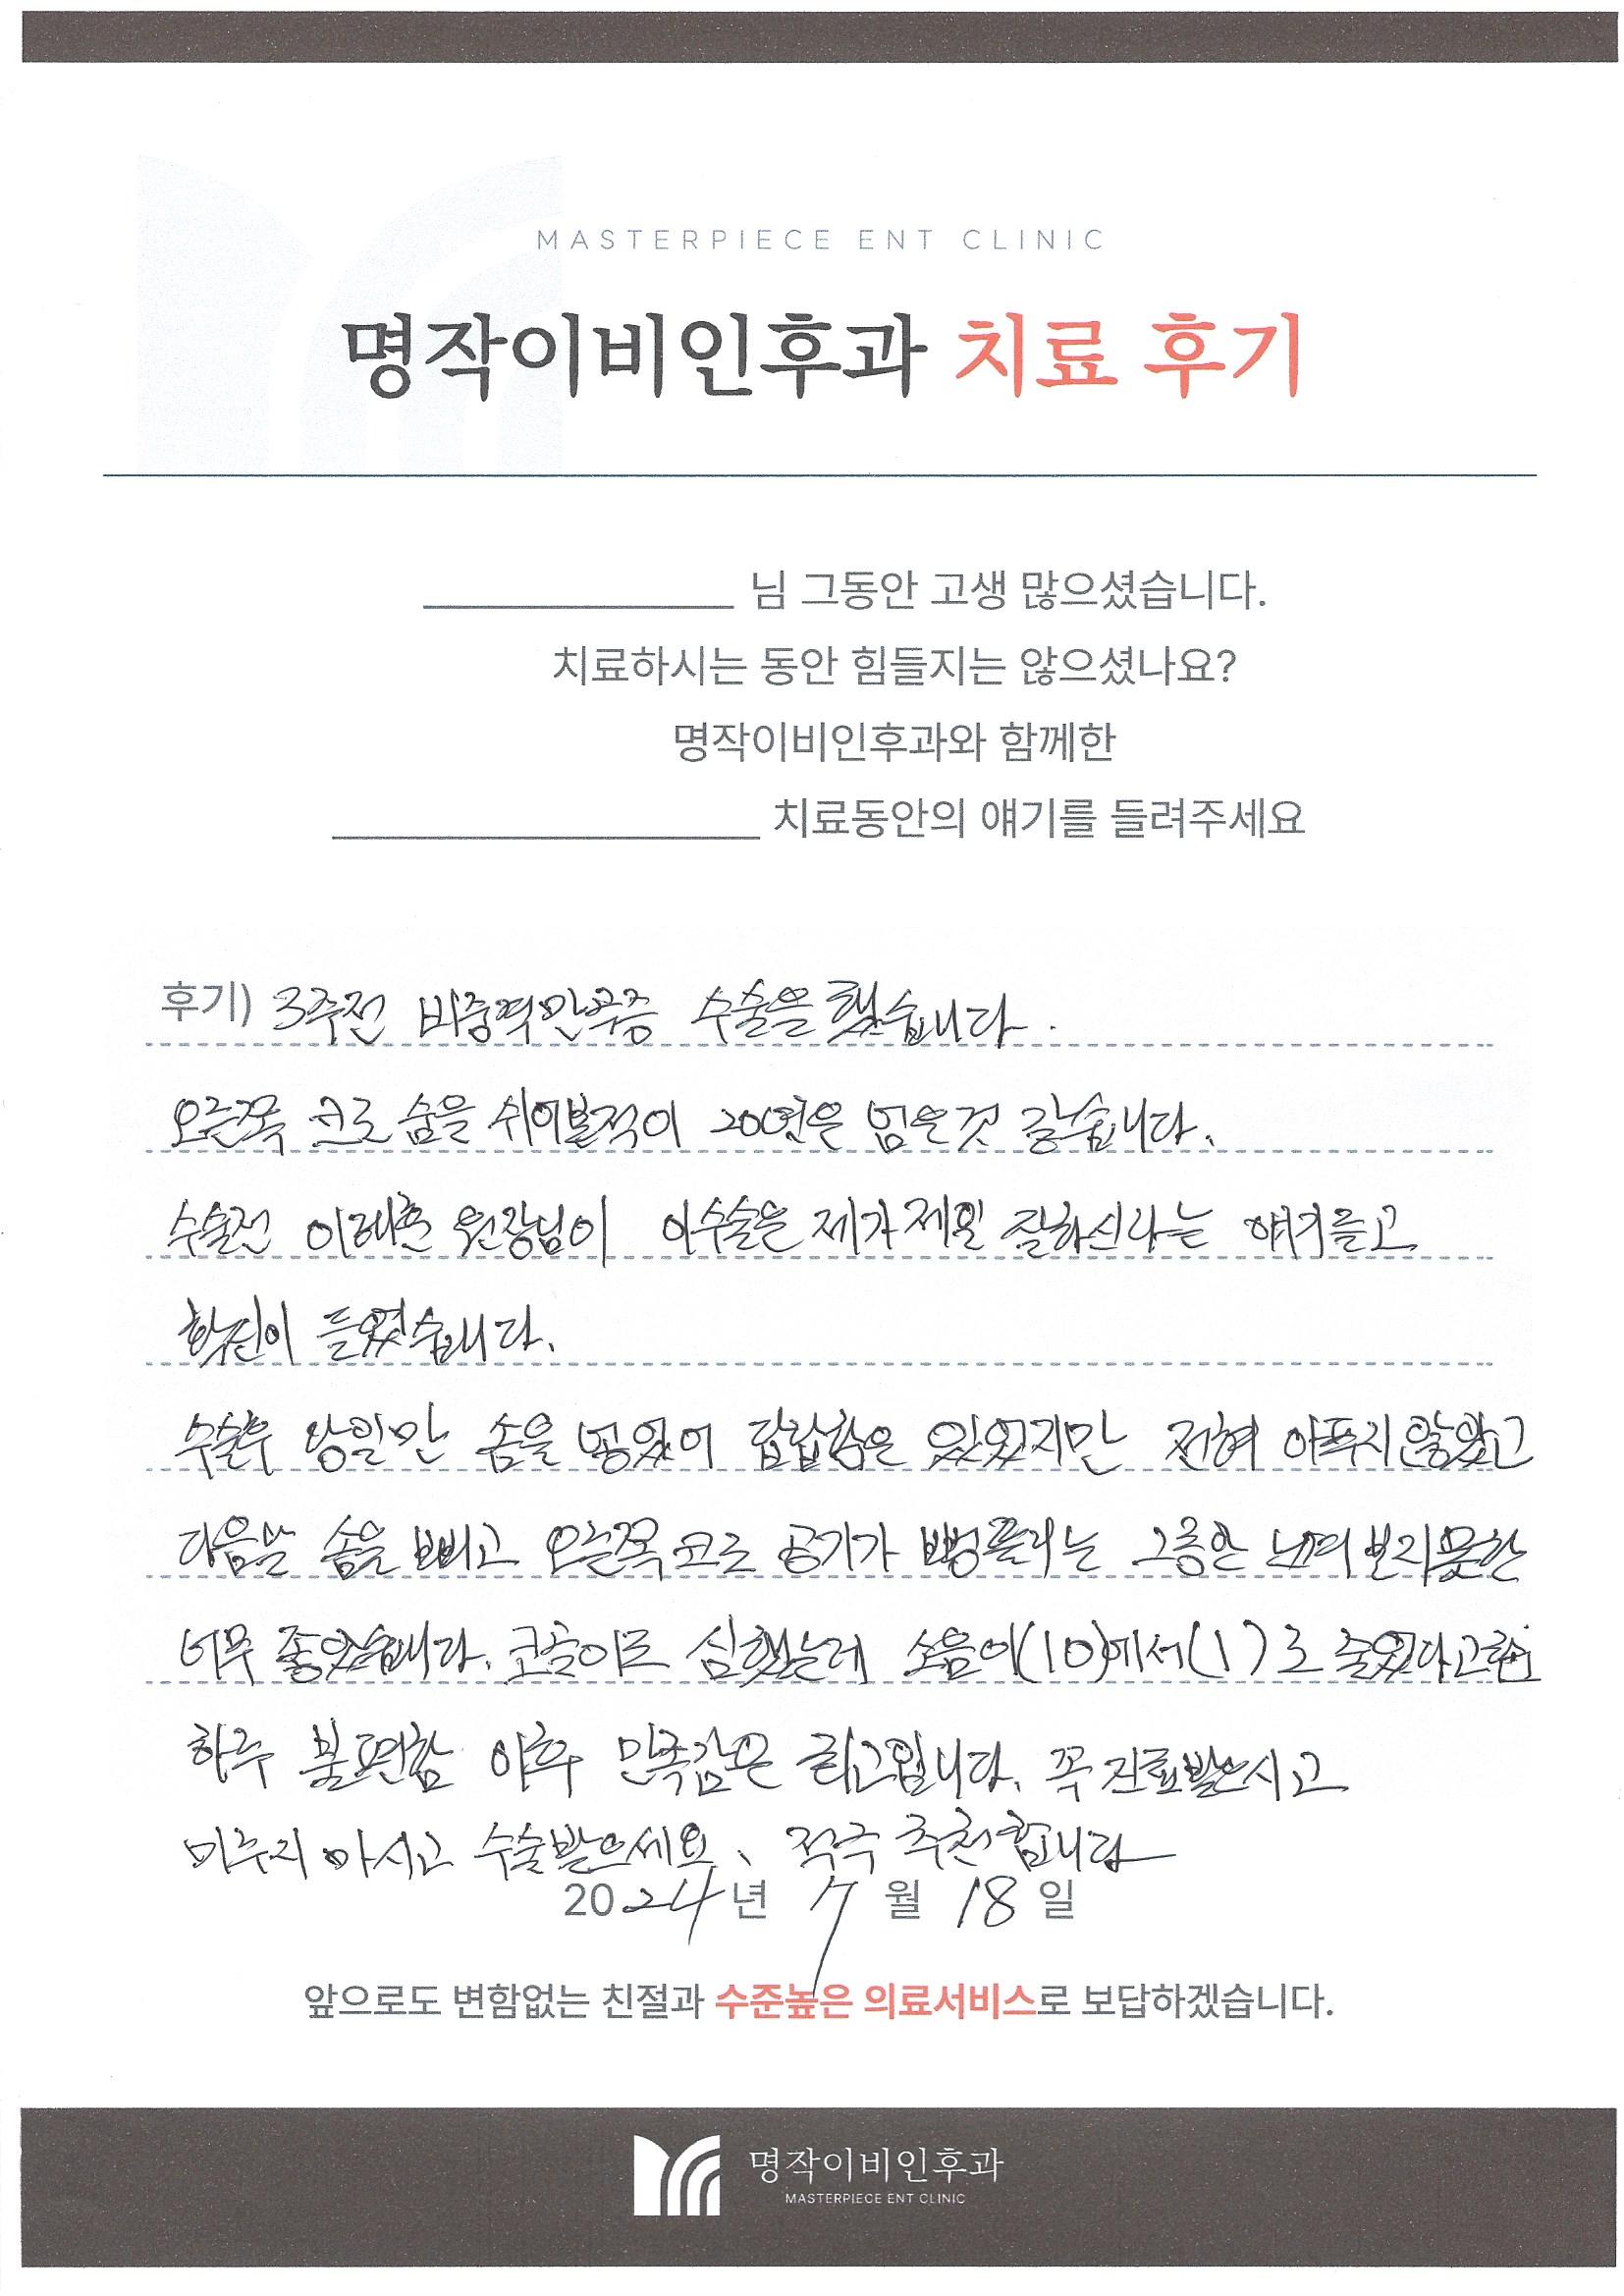 MASTERPIECE ENT CLINIC
명작이비인후과 치료 후기
님 그동안 고생 많으셨습니다.
치료하시는 동안 힘들지는 않으셨나요?
명작이비인후과와 함께한
치료동안의 얘기를 들려주세요
후기) 3주전 비중격만곡증 수술을 했습니다.
오른쪽 코로 숨을 쉬어본적이 20여년은 넘은것 같습니다.
수술전 원장님이 이수술은 제가 제일 잘하신다는 얘기듣고
확신이 들었습니다.
수술후 당일만 솜을 넣었어 답답함은 있었지만 전혀 아프지않았고
다음날 솜을 빼고 오른쪽 코로 공기가 뻥뚫리는 그동안 느껴보지못한
너무 좋았습니다. 코골이도 심했는데 소음이(10)에서(1)로 줄었다고
하루 불편함 이후 만족감은 최고입니다. 꼭 진료받으시고
미루지 마시고 수술받으세요. 적극 추천합니다
2024년 7월 18일
앞으로도 변함없는 친절과 수준높은 의료서비스로 보답하겠습니다.
명작이비인후과
MASTERPIECE ENT CLINIC